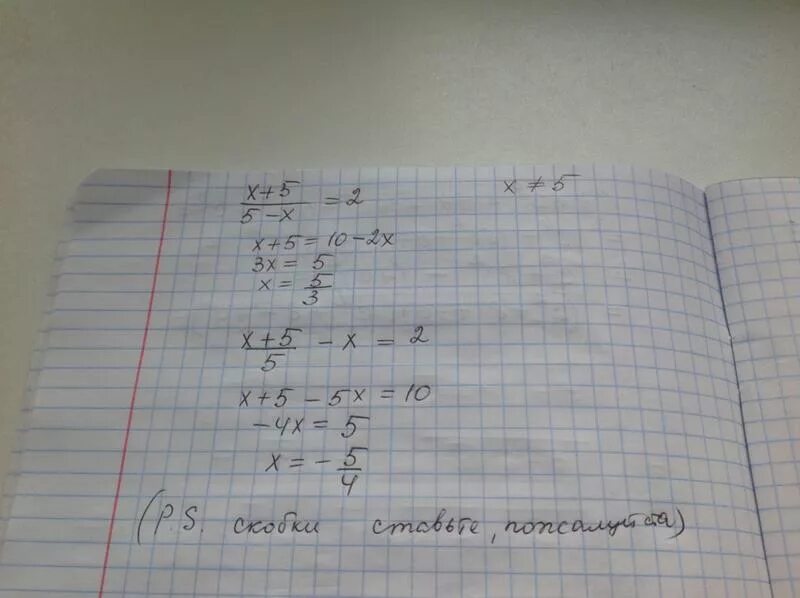 x+5/5-x = 2    x ≠ 5
x+5 = 10-2x
3x = 5
x = 5/3
x+5/5 - x = 2
x+5-5x = 10
-4x = 5
x = -5/4
(P.S. скобки ставьте, пожалуйста)